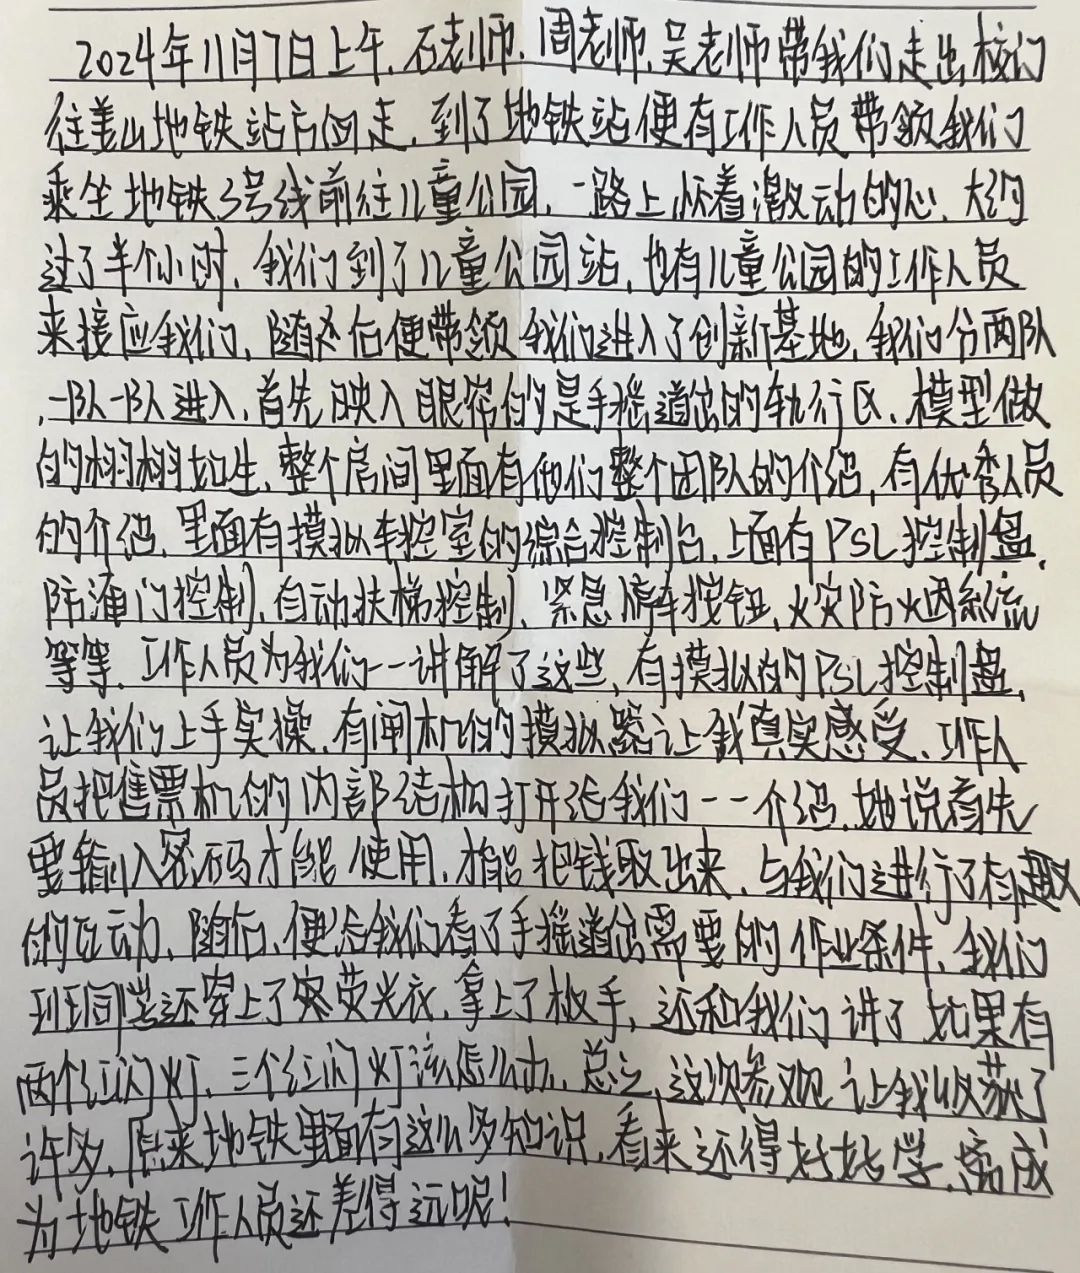 2024年11月7日上午,石老师、周老师、吴老师带我们走出校门
往姜山地铁站方向走,到了地铁站便有工作人员带领我们
乘坐地铁3号线前往儿童公园,一路上怀着激动的心,大约
过了半个小时,我们到了儿童公园站,也有儿童公园的工作人员
来接应我们,随后便带领我们进入了创新基地,我们分两队
,一队一队进入,首先映入眼帘的是手摇道岔的轨行区,模型做
的栩栩如生,整个房间里面有他们整个团队的介绍,有优秀人员
的介绍,里面有摸拟车控室的综合控制台,上面有PSL控制盘,
防淹门控制,自动扶梯控制,紧急停车按钮,火灾防火
等等,工作人员为我们一一讲解了这些,有摸拟的PSL控制盘,
让我们上手实操,有闸机的摸拟器让我真实感受,工作人
员把售票机的内部结构打开给我们一一介绍,她说首先
要输入密码才能使用,才能把钱取出来,与我们进行了有趣
的互动,随后,便给我们看了手摇道岔需要的作业条件,我们
班同学还穿上了荧光衣,拿上了板手,还和我们讲了如果有
两个红闪灯,三个红闪灯该怎么办,总之,这次参观让我收获了
许多,原来地铁里面有这么多知识,看来还得好好学,离成
为地铁工作人员还差得远呢!